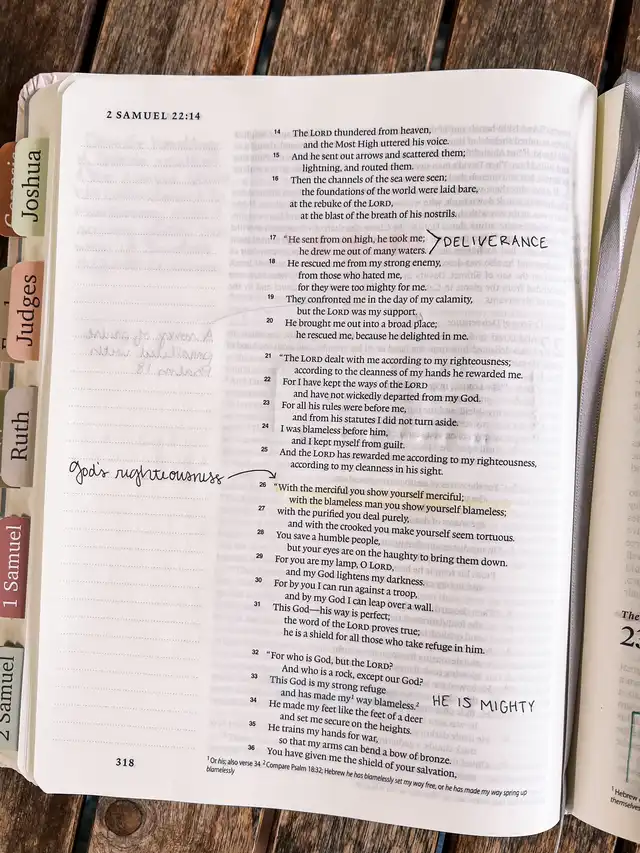 2 SAMUEL 22:14
14 The LORD thundered from heaven,
and the Most High uttered his voice.
15 And he sent out arrows and scattered them;
lightning, and routed them.
16 Then the channels of the sea were seen;
the foundations of the world were laid bare,
at the rebuke of the LORD,
at the blast of the breath of his nostrils.
17 “He sent from on high, he took me;
he drew me out of many waters.
DELIVERANCE
18 He rescued me from my strong enemy,
from those who hated me,
for they were too mighty for me.
19 They confronted me in the day of my calamity,
but the LORD was my support.
20 He brought me out into a broad place;
he rescued me, because he delighted in me.
21 “The LORD dealt with me according to my righteousness;
according to the cleanness of my hands he rewarded me.
22 For I have kept the ways of the LORD
and have not wickedly departed from my God.
23 For all his rules were before me,
and from his statutes I did not turn aside.
24 I was blameless before him,
and I kept myself from guilt.
25 And the LORD has rewarded me according to my righteousness,
according to my cleanness in his sight.
god's righteousness
26 “With the merciful you show yourself merciful;
with the blameless man you show yourself blameless;
27 with the purified you deal purely,
and with the crooked you make yourself seem tortuous.
28 You save a humble people,
but your eyes are on the haughty to bring them down.
29 For you are my lamp, O LORD,
and my God lightens my darkness.
30 For by you I can run against a troop,
and by my God I can leap over a wall.
31 This God—his way is perfect;
the word of the LORD proves true;
he is a shield for all those who take refuge in him.
32 “For who is God, but the LORD?
And who is a rock, except our God?
33 This God is my strong refuge
and has made my¹ way blameless.²
HE IS MIGHTY
34 He made my feet like the feet of a deer
and set me secure on the heights.
35 He trains my hands for war,
so that my arms can bend a bow of bronze.
36 You have given me the shield of your salvation,
318
¹ Or his; also verse 34 ² Compare Psalm 18:32; Hebrew he has blamelessly set my way free, or he has made my way spring up
blamelessly
Joshua
Judges
Ruth
1 Samuel
2 Samuel
The
23
¹ Hebrew
themselves